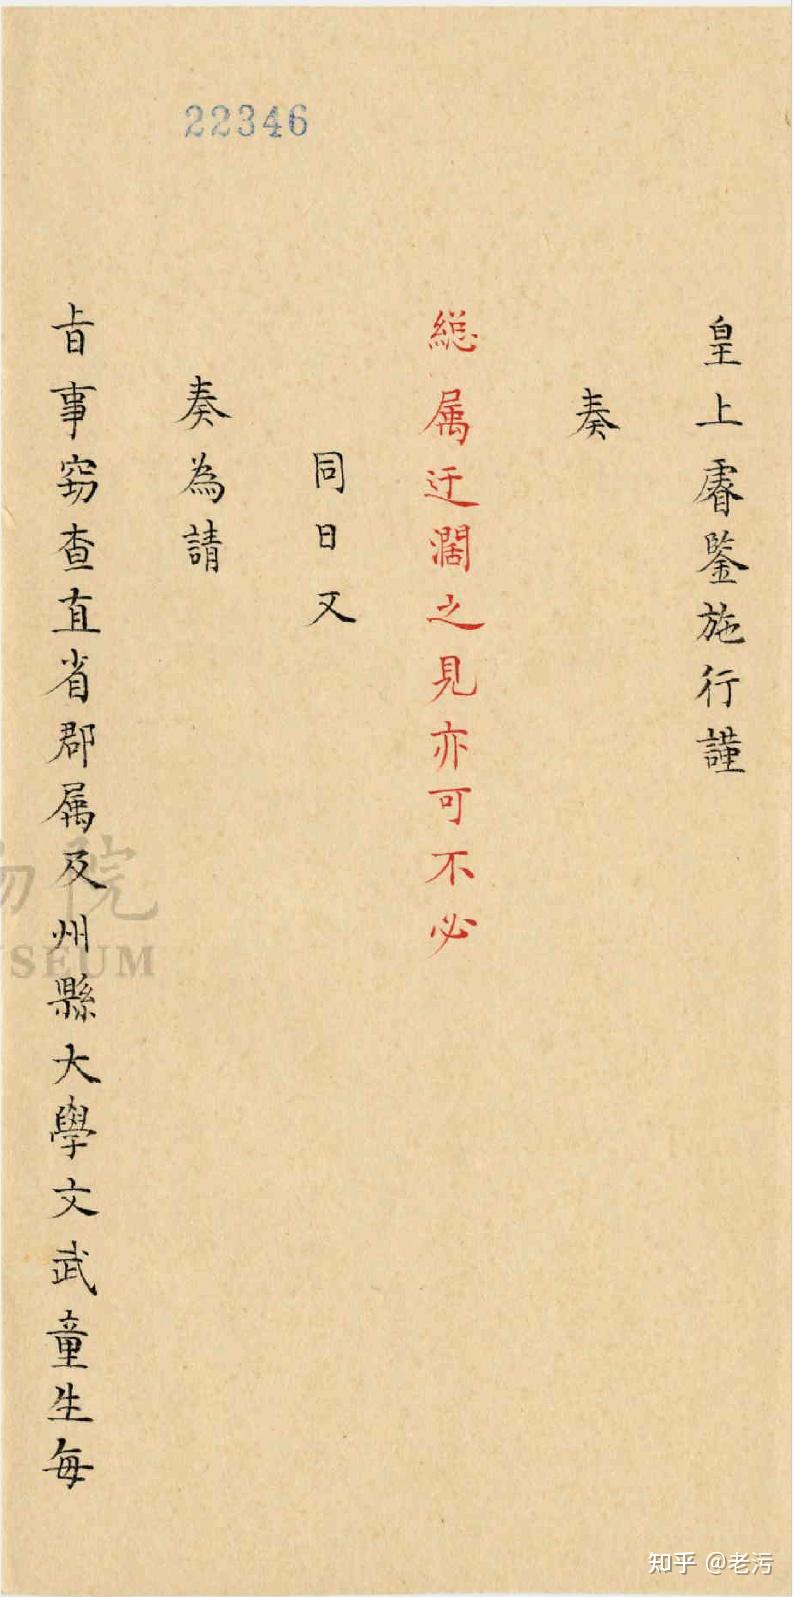 22346
皇上睿鑒施行謹
奏
縂属迂濶之見亦可不必
同日又
奏為請
旨事窃查直省郡属及州縣大學文武童生每
物院
MUSEUM
知乎 @老污